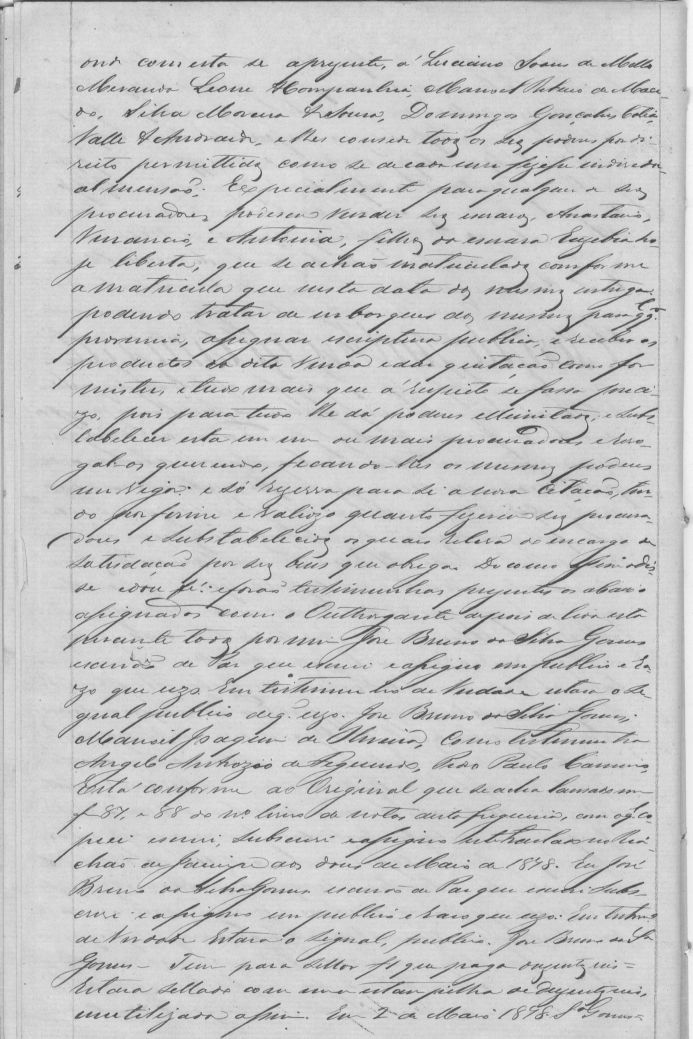 onde com esta se aprezente, á Luciano Soares de Mello
Meranda Leone & Companhia, Manoel Ribeiro de Mace-
do, Silva Moreira & Sousa, Domingos Gonçalves
Valle & Andrade, e lhes consede todos os sez poderes por di-
reito permittidos como se de cada um fizese indevidu-
al mensaõ; Especialmente para qualquer de sez
procuradores poderem vender sez escravos, Anastacio,
Venancio, e Antonia, filhos da escrava Euzebia ho-
je liberta, que se achaõ matriculados comforme
a matricula que nesta data dos mesmos entrega.
podendo tratar de imborques dos mesmos para qq.ʳ
provincia, asignar escriptura publica, e receber os
productos da dita venda e dar quitaçaõ como for
mister, e tudo mais que á respeito se fassa preci-
zo, pois para tudo lhe dá poderes ellimitados, e subs-
tabelecer esta em um ou mais procuradores e revo-
gal-os querendo, ficando-lhes os mesmos poderes
em vigor: e só rezerva para si a nova Citaçaõ, ten-
do por firme e valiozo quanto fizerem sez procura-
dores e substabelecidos os quais releva do encargo de
satisdaçaõ por sez bens que obriga. De como assim o dis-
se e dou fé: e foraõ testimunhas prezentes os abaixo
asignados com o Outhorgante depois de lida esta
perante todos por mim José Bruno da Silva Gomes
escrivaõ de Paz que escrevi e asigno em publico e ra-
zo que uzo. Em testimunho de Verdade estava o si-
gnal publico de q.ᵉ uzo. José Bruno da Silva Gomes,
Manoel Joaquim de Oliveira, Como testimunha
Angelo Antrozio de Figueredo, Pedro Paulo
Está conforme ao Original que se acha lansado em
f 87. e 88 do livro de notas desta freguezia, com o q.ᵉ co-
piei escrevi, subscrevi e asigno neste Ria-
chaõ de Jacuipe aos dous de Maio de 1878. Eu José
Bruno da Silva Gomes escrivaõ de Paz que escrevi subs
crevi e asigno em publico e raso que uzo. Em testm.º
de Verdade Estava o signal publico. José Bruno da S.ª
Gomes — Tem para sellar f que paga duzentos reis =
Estava sellada com uma estampilha de duzentos reis,
inutilizada asim. Em 2 de Maio 1878. S.ª Gomes =